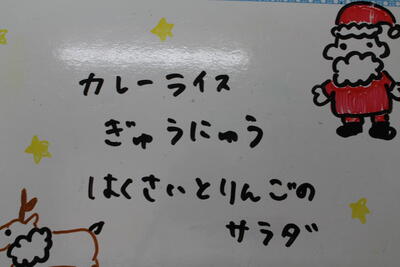 カレーライス
ぎゅうにゅう
はくさいとりんごの
サラダ